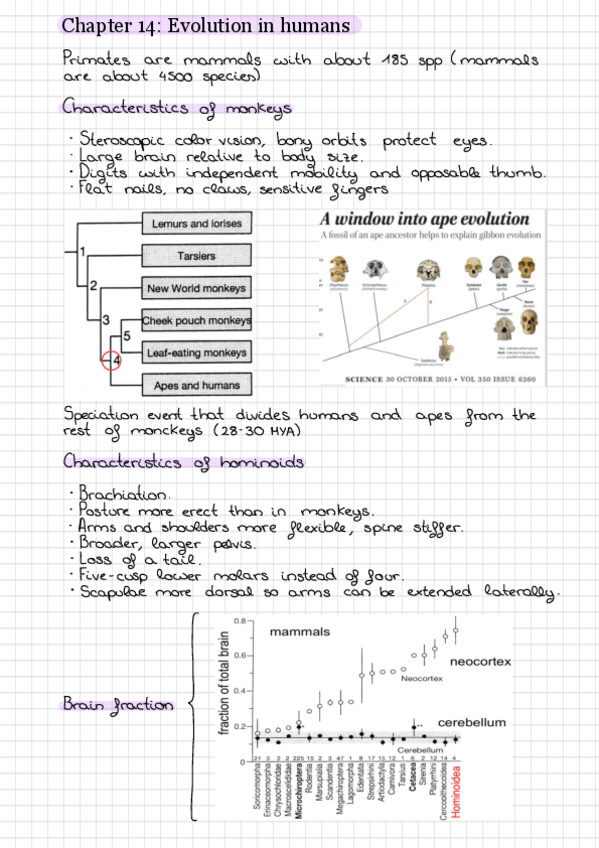 Chapter 14: Evolution in humans
Primates are mammals with about 185 spp (mammals
are about 4500 species)
Characteristics of monkeys
· Steroscopic color vision, bony orbits protect eyes.
· Large brain relative to body size.
· Digits with independent mobility and opposable thumb.
· Flat nails, no claws, sensitive fingers
Lemurs and lorises
Tarsiers
New World monkeys
Cheek pouch monkeys
Leaf-eating monkeys
Apes and humans
1
2
3
5
4
A window into ape evolution
A fossil of an ape ancestor helps to explain gibbon evolution
SCIENCE 30 OCTOBER 2015 • VOL 350 ISSUE 6260
Speciation event that divides humans and apes from the
rest of monckeys (28-30 MYA)
Characteristics of hominoids
· Brachiation.
· Posture more erect than in monkeys.
· Arms and shoulders more flexible, spine stiffer.
· Broader, larger pelvis.
· Loss of a tail.
· Five-cusp lower molars instead of four.
· Scapulae more dorsal so arms can be extended laterally.
Brain fraction
fraction of total brain
0.8
0.6
0.4
0.2
0
mammals
neocortex
Neocortex
cerebellum
Cerebellum
Soricomorpha
Erinaceomorpha
Chrysochloridae
Macroscelididae
Microchiroptera
Rodentia
Marsupialia
Scandentia
Megachiroptera
Lagomorpha
Edentata
Strepsirhini
Artiodactyla
Carnivora
Tarsius
Cetacea
Sirenia
Platyrrhini
Cercopithecoidea
Hominoidea